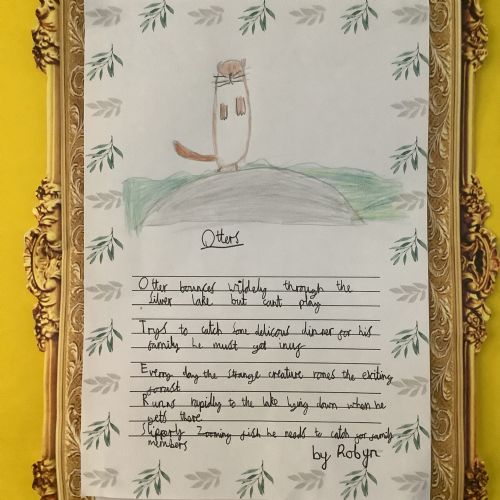 Otters
Otter bounces wildely through the
silver lake but cant play
Trys to catch some delicous dinner for his
family he must get
Every day the strange creature the exciting
forest
Runns rapidly to the lake lying down when he
gets there
Slipperly Zooming fish he needs to catch for family
members
by Robyn